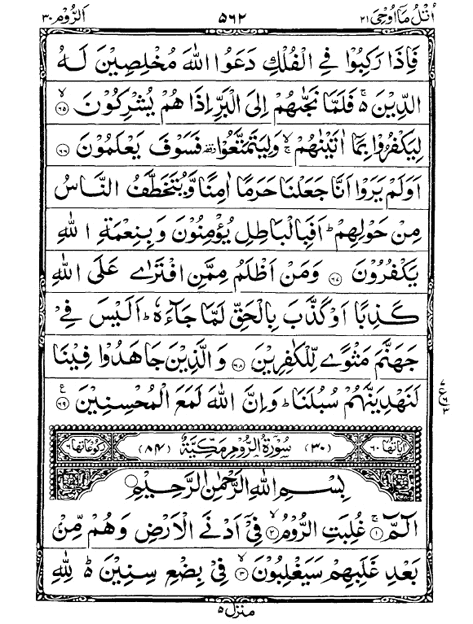 اتل ما اوحی ۲۱ ۵٦۲ الروم ۳۰
فَاِذَا رَكِبُوْا فِي الْفُلْكِ دَعَوُا اللّٰهَ مُخْلِصِيْنَ لَهُ
الدِّيْنَ ۚ فَلَمَّا نَجّٰىهُمْ اِلَى الْبَرِّ اِذَا هُمْ يُشْرِكُوْنَ ۙ﴿۶۵﴾
لِيَكْفُرُوْا بِمَاۤ اٰتَيْنٰهُمْ ۚ وَلِيَتَمَتَّعُوْا ۥ فَسَوْفَ يَعْلَمُوْنَ ﴿۶۶﴾
اَوَلَمْ يَرَوْا اَنَّا جَعَلْنَا حَرَمًا اٰمِنًا وَّيُتَخَطَّفُ النَّاسُ
مِنْ حَوْلِهِمْ ؕ اَفَبِالْبَاطِلِ يُؤْمِنُوْنَ وَبِنِعْمَةِ اللّٰهِ
يَكْفُرُوْنَ ﴿۶۷﴾ وَمَنْ اَظْلَمُ مِمَّنِ افْتَرٰى عَلَى اللّٰهِ
كَذِبًا اَوْ كَذَّبَ بِالْحَقِّ لَمَّا جَآءَهٗ ؕ اَلَيْسَ فِيْ
جَهَنَّمَ مَثْوًى لِّلْكٰفِرِيْنَ ﴿۶۸﴾ وَالَّذِيْنَ جَاهَدُوْا فِيْنَا
لَنَهْدِيَنَّهُمْ سُبُلَنَا ؕ وَاِنَّ اللّٰهَ لَمَعَ الْمُحْسِنِيْنَ ﴿۶۹﴾
اٰیاتها ۶۰ (۳۰) سُوْرَةُ الرُّوْمِ مَكِّيَّةٌ (۸۴) رکوعاتها ۶
بِسْمِ اللّٰهِ الرَّحْمٰنِ الرَّحِيْمِ
الٓمّٓ ۚ﴿۱﴾ غُلِبَتِ الرُّوْمُ ۙ﴿۲﴾ فِيْۤ اَدْنَى الْاَرْضِ وَهُمْ مِّنْۢ
بَعْدِ غَلَبِهِمْ سَيَغْلِبُوْنَ ۙ﴿۳﴾ فِيْ بِضْعِ سِنِيْنَ ؕ لِلّٰهِ
منزل ۵